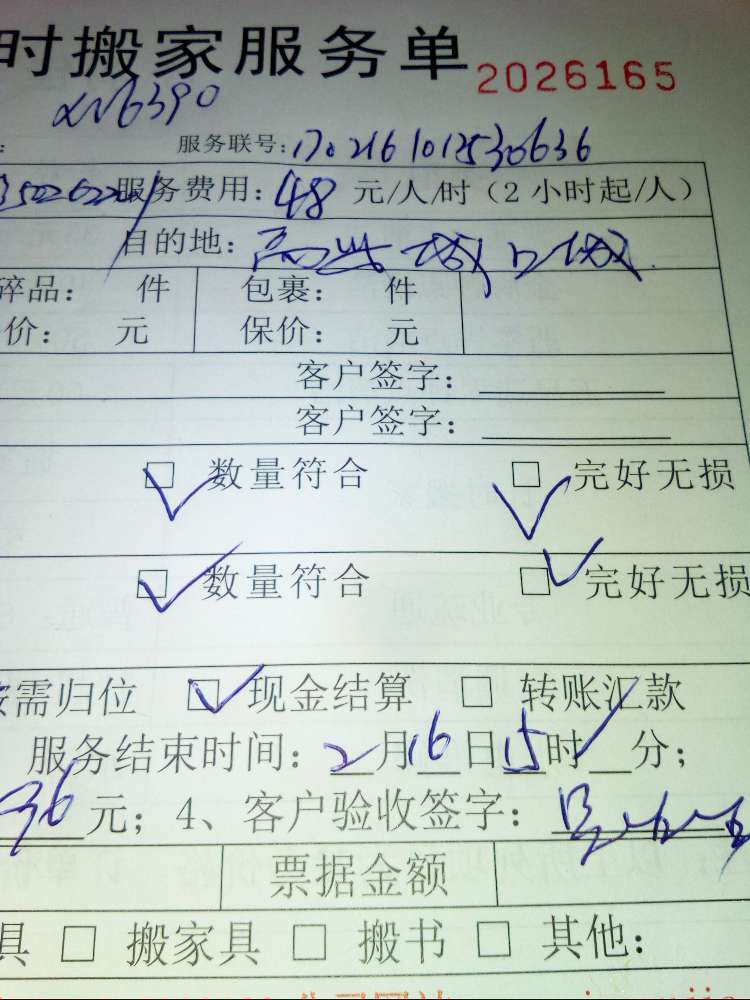 时搬家服务单 2026165
服务联号:1702161012530636
服务费用: 48 元/人/时（2小时起/人）
目的地:
碎品: 件 包裹: 件
价: 元 保价: 元
客户签字:
客户签字:
☐ 数量符合 ☐ 完好无损
☐ 数量符合 ☐ 完好无损
按需归位 ☐ 现金结算 ☐ 转账汇款
服务结束时间: 2月16日15时 分;
元; 4、客户验收签字:
票据金额
具 ☐ 搬家具 ☐ 搬书 ☐ 其他: